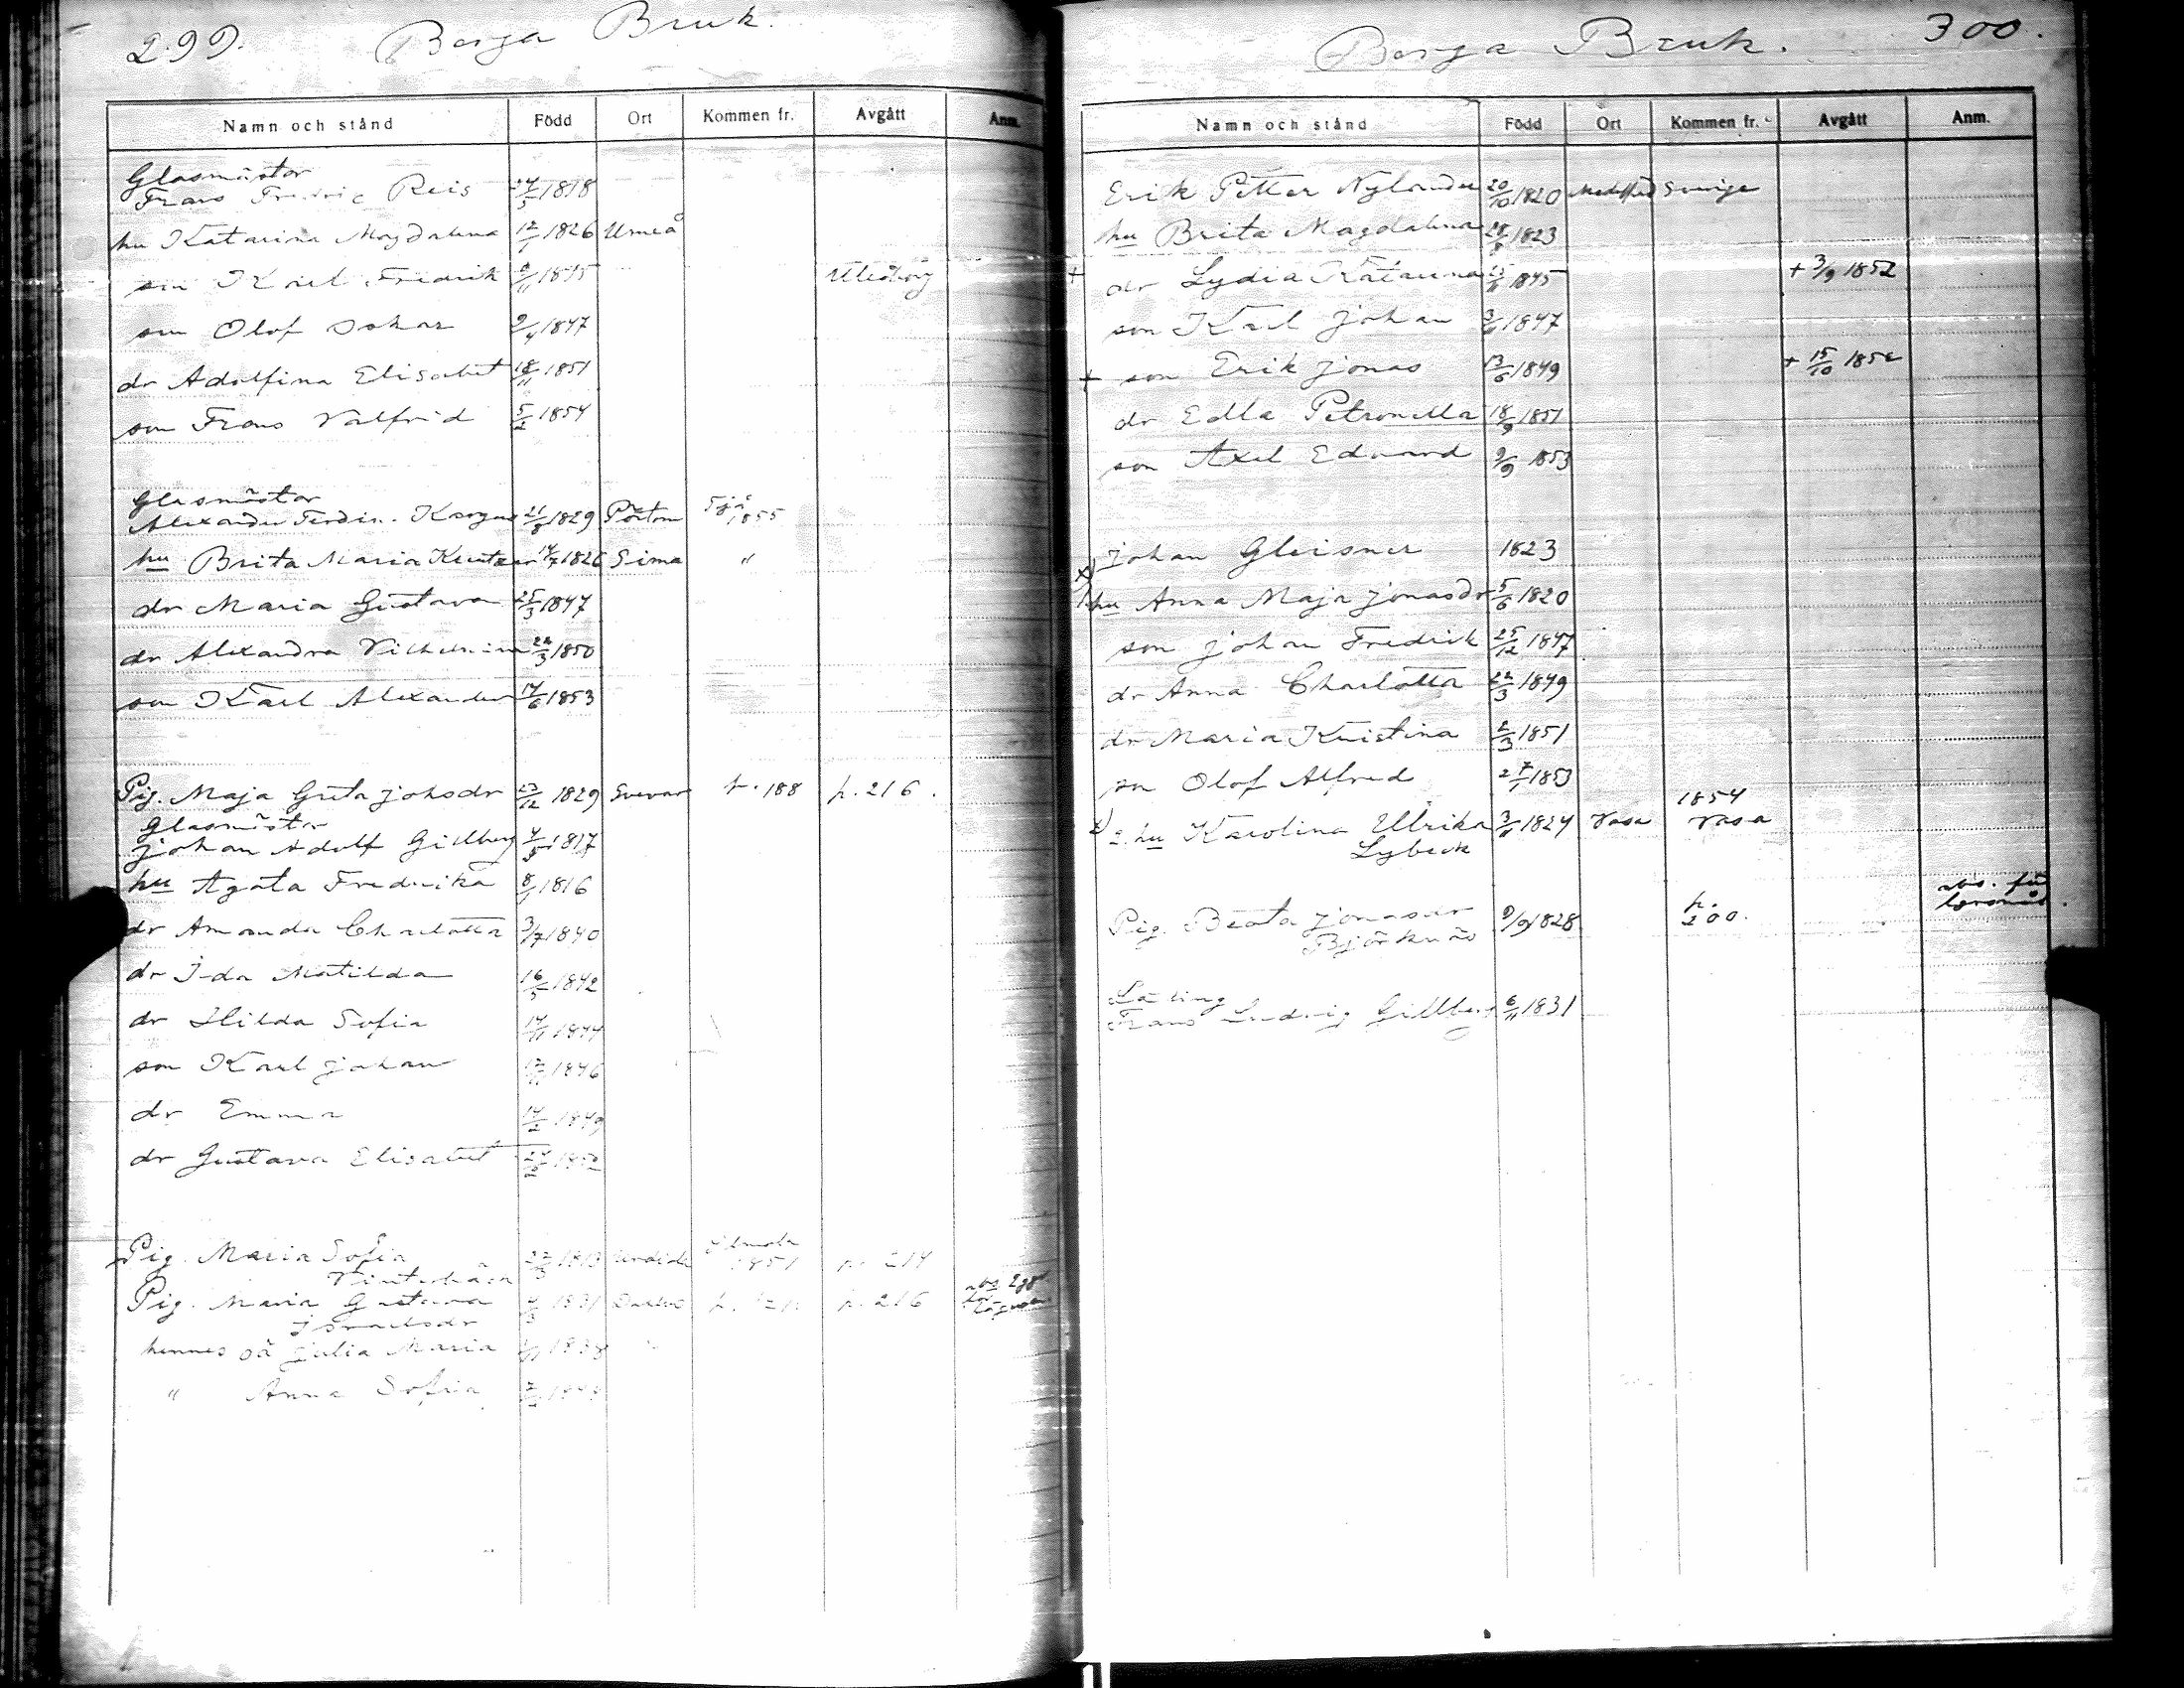 299.
Borga Bruk.
Namn och stånd Född Ort Kommen fr. Avgått Anm.
Glasmästar
Frans Fredric Reis 1818
hu Katarina Magdalena 12/1 1826 Umeå
son Karl Fredrik 1845 Uleåborg
son Olof Oskar 9/4 1847
dr Adolfina Elisabet 18/11 1851
son Frans Valfrid 5/2 1854
Glasmästar
Alexander Ferdin. 21/8 1829 Pörtom 1855
hu Brita Maria 14/7 1826 Sima "
dr Maria Gustava 25/3 1847
dr Alexandra Vilhelmina 22/3 1850
son Karl Alexander 14/6 1853
Pig. Maja Greta johsdr 23/12 1829 p. 188 p. 216.
Glasmästar
johan Adolf Gillberg 1817
hu Agata Fredrika 8/1 1816
dr Amanda Charlotta 3/7 1840
dr Ida Matilda 16/5 1842
dr Hilda Sofia 14/11 1844
son Karl johan 1846
dr Emma 14/2 1849
dr Gustava Elisabet 1852
Pig. Maria Sofia 1851 p. 214
Pig. Maria Gustava 1831 p. 216
hennes oä julia Maria
" Anna Sofia
Borga Bruk. 300.
Namn och stånd Född Ort Kommen fr. Avgått Anm.
Erik Petter Nylander 20/10 1820 Sverige
hu Brita Magdalena 1823
+ dr Lydia Katarina 1845 + 3/9 1852
son Karl johan 1847
+ son Erik jonas 13/6 1849 + 15/10 1852
dr Edla Petronella 18/9 1851
son Axel Edvard 9/9 1853
johan Gleisner 1823
hu Anna Maja jonasdr 5/6 1820
son johan Fredrik 25/12 1847
dr Anna Charlotta 22/3 1849
dr Maria Kristina 2/3 1851
son Olof Alfred 1853
1854
2. hu Karolina Ulrika 1824 Vasa Vasa
Lybeck
Pig. Beata jonasdr 9/9 1828 p. 200.
Björknäs
Lärling
Frans Ludvig Gillberg 6/11 1831